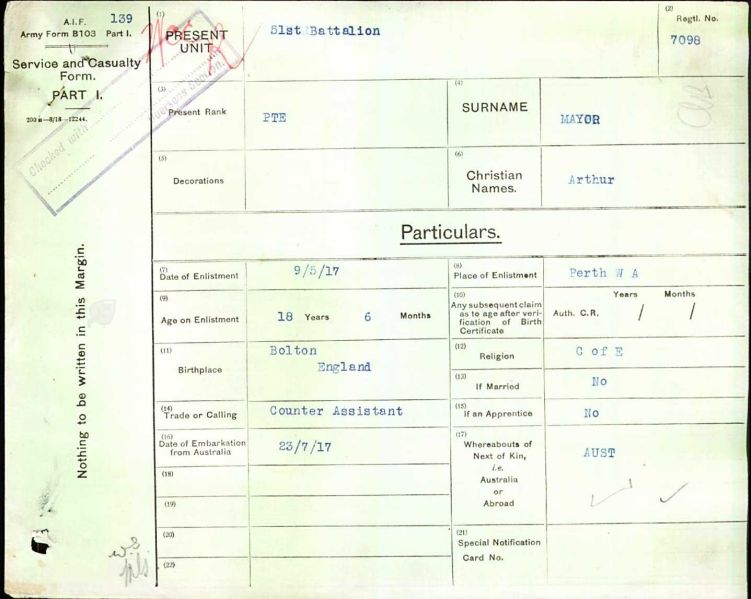 A.I.F. 139
Army Form B103 Part I.
Service and Casualty
Form.
PART I.
200 m—8/18—12244.
Checked with
Overseas Section.
Nothing to be written in this Margin.
(1)
PRESENT
UNIT
51st Battalion
(2)
Regtl. No.
7098
(3)
Present Rank
PTE
(4)
SURNAME
MAYOR
(5)
Decorations
(6)
Christian
Names.
Arthur
Particulars.
(7)
Date of Enlistment
9/5/17
(8)
Place of Enlistment
Perth W A
(9)
Age on Enlistment
18 Years 6 Months
(10)
Any subsequent claim
as to age after veri-
fication of Birth
Certificate
Years Months
Auth. C.R. / /
(11)
Birthplace
Bolton
England
(12)
Religion
C of E
(13)
If Married
No
(14)
Trade or Calling
Counter Assistant
(15)
If an Apprentice
No
(16)
Date of Embarkation
from Australia
23/7/17
(17)
Whereabouts of
Next of Kin,
i.e.
Australia
or
Abroad
AUST
(18)
(19)
(20)
(21)
Special Notification
Card No.
(22)